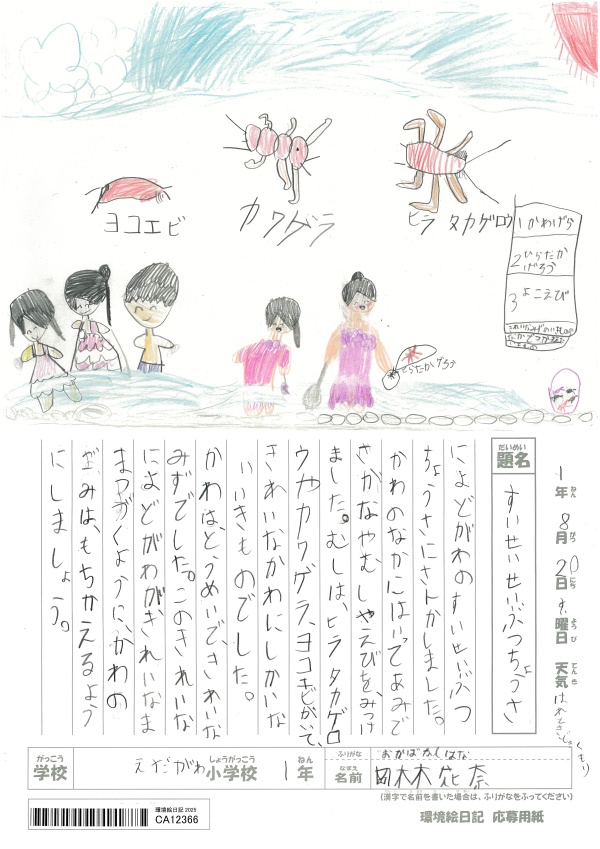 ヨコエビ
カワゲラ
ヒラタカゲロウ
1かわげら
2ひらたか
げろう
3よこえび
ひらたかげろう
だいめい
題名
すいせいせいぶつちょうさ
1年 8月 20日 す曜日 天気 はれときどきくもり
ねん がつ にち ようび てんき
によどがわのすいせいぶつ
ちょうさにさんかしました。
かわのなかにはいってあみで
さかなやむしやえびをみつけ
ました。むしは、ヒラタカゲロ
ウやカワゲラ、ヨコエビがいて、
きれいなかわにしかいな
いいきものでした。
かわは、とうめいできれいな
みずでした。このきれいな
によどがわが、きれいなま
まつづくように、かわの
ごみは、もちかえるよう
にしましょう。
がっこう
学校
えだがわ小学校
しょうがっこう
1年
ねん
ふりがな
おかばやしはな
なまえ
名前
岡林花奈
(漢字で名前を書いた場合は、ふりがなをふってください)
環境絵日記 2025
CA12366
環境絵日記 応募用紙